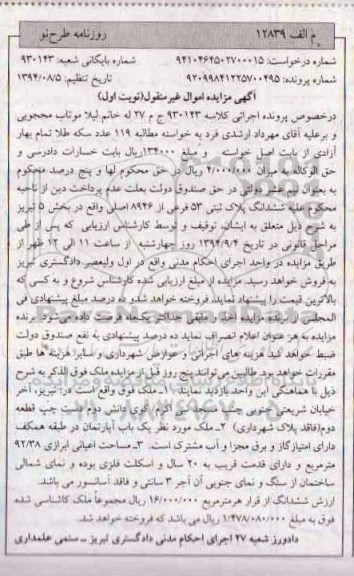 م الف ۱۲۸۳۹ روزنامه طرح‌نو
شماره درخواست: ۹۴۱۰۴۶۴۵۰۲۷۰۰۰۱۵ شماره بایگانی شعبه: ۹۳۰۱۴۳
شماره پرونده: ۹۲۰۹۹۸۴۱۲۲۵۷۰۰۴۹۵ تاریخ تنظیم: ۱۳۹۴/۰۸/۵
آگهی مزایده اموال غیرمنقول(نوبت اول)
درخصوص پرونده اجرائی کلاسه ۹۳۰۱۴۳ ج م ۲۷ له خانم لیلا موتاب محجوبی
و برعلیه آقای مهرداد ارشدی فرد به خواسته مطالبه ۱۱۹ عدد سکه طلا تمام بهار
آزادی از بابت اصل خواسته و مبلغ ۱۳۴۰۰۰ریال بابت خسارات دادرسی و
حق الوکاله به میزان ۴/۰۰۰/۰۰۰ ریال در حق محکوم لها و پنج درصد محکوم
به بعنوان نیم عشر دولتی در حق صندوق دولت بعلت عدم پرداخت دین از ناحیه
محکوم علیه ششدانگ پلاک ثبتی ۵۳ فرعی از ۸۹۴۶ اصلی واقع در بخش ۵ تبریز
به شرح ذیل متعلق به ایشان، توقیف و توسط کارشناس ارزیابی که پس از طی
مراحل قانونی در تاریخ ۱۳۹۴/۹/۴ روز چهارشنبه از ساعت ۱۱ الی ۱۲ ظهر از
طریق مزایده در واحد اجرای احکام مدنی واقع در اول ولیعصر دادگستری تبریز
به فروش خواهد رسید. مزایده از مبلغ ارزیابی شده کارشناس شروع و به کسی که
بالاترین قیمت را پیشنهاد نماید، فروخته خواهد شد و ده درصد مبلغ پیشنهادی فی
المجلس از برنده مزایده اخذ و مابقی حداکثر یکماه فرصت داده می‌شود. برنده
مزایده به هر عنوان اعلام انصراف نماید ده درصد پیشنهادی به نفع صندوق دولت
ضبط خواهد شد هزینه های اجرائی و عوارض شهرداری و سایر هزینه ها طبق
مقررات خواهد بود طالبین می‌توانند پنج روز قبل از مزایده ملک فوق الذکر به شرح
ذیل با هماهنگی این واحد بازدید نمایند. ۱ـ ملک فوق واقع است در: تبریز، آخر
خیابان شریعتی جنوبی جنب مسجد کوی دانش دوم سمت چپ قطعه
دوم(فاقد پلاک شهرداری) ۲ـ ملک مورد نظر یک باب آپارتمان در طبقه همکف
دارای امتیاز گاز و برق مجزا و آب مشترک است. ۳ـ مساحت اعیانی ابرازی ۹۲/۳۸
مترمربع و دارای قدمت قریب به ۲۰ سال و اسکلت فلزی بوده و نمای شمالی
ساختمان از سنگ و نمای جنوبی آن آجر ۳ سانتی و فاقد آسانسور می باشد.
ارزش ششدانگ از قرار هرمترمربع ۱۶/۰۰۰/۰۰۰ ریال مجموعاً ملک کاشناسی شده
فوق به مبلغ ۱/۴۷۸/۰۸۰/۰۰۰ ریال می باشد که فروخته خواهد شد.
دادورز شعبه ۲۷ اجرای احکام مدنی دادگستری تبریز ــ سنمی علمداری